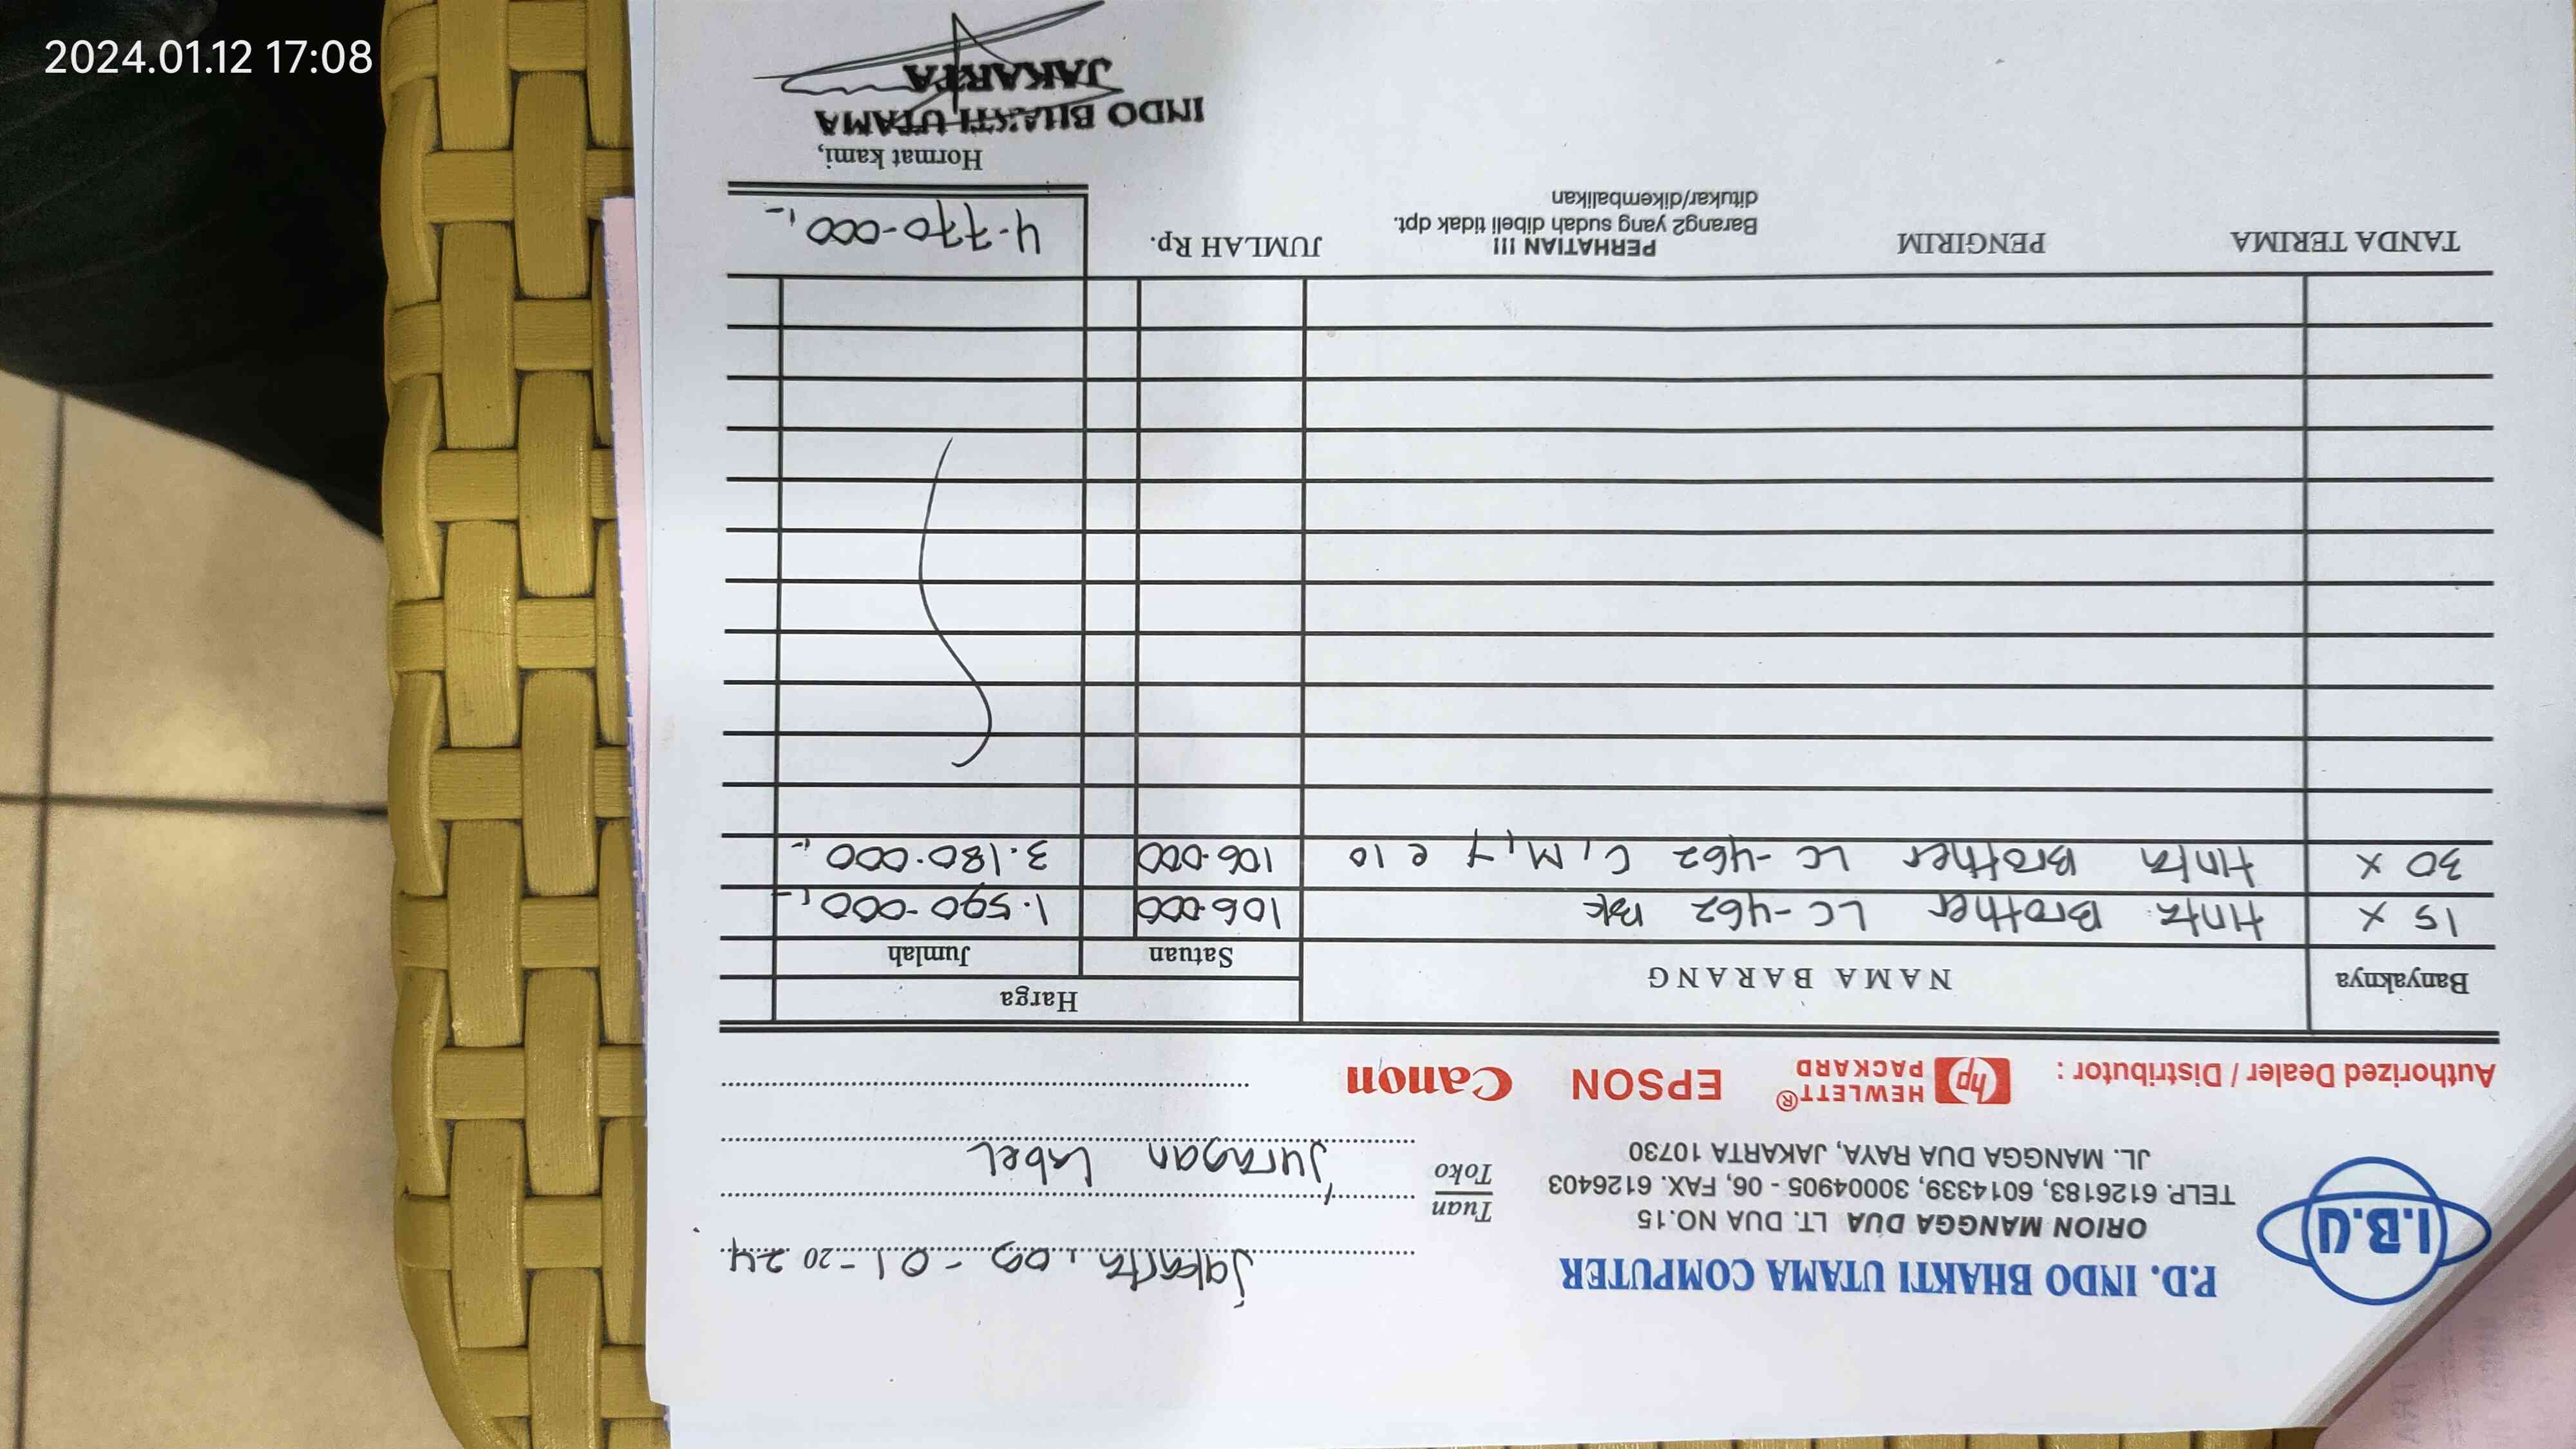 2024.01.12 17:08
I.B.U
P.D. INDO BHAKTI UTAMA COMPUTER
ORION MANGGA DUA LT. DUA NO.15
TELP. 6126183, 6014339, 30004905 - 06, FAX. 6126403
JL. MANGGA DUA RAYA, JAKARTA 10730
Authorized Dealer / Distributor : hp HEWLETT® PACKARD EPSON Canon
Jakarta, 09 - 01 - 20 24
Tuan
Toko
Juragan Label
Banyaknya NAMA BARANG Harga
Satuan Jumlah
15 x tinta Brother LC-462 BK 106.000 1.590.000,-
30 x tinta Brother LC-462 C, M, Y @ 10 106.000 3.180.000,-
TANDA TERIMA PENGIRIM PERHATIAN !!! JUMLAH Rp. 4.770.000,-
Barang2 yang sudah dibeli tidak dpt.
ditukar/dikembalikan
Hormat kami,
INDO BHAKTI UTAMA
JAKARTA